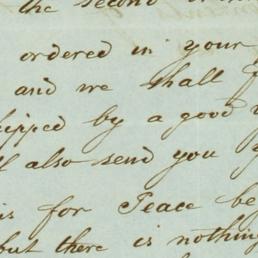 the second
ordered in your
and we shall
by a good
also send you
is for Peace be
but there is nothing